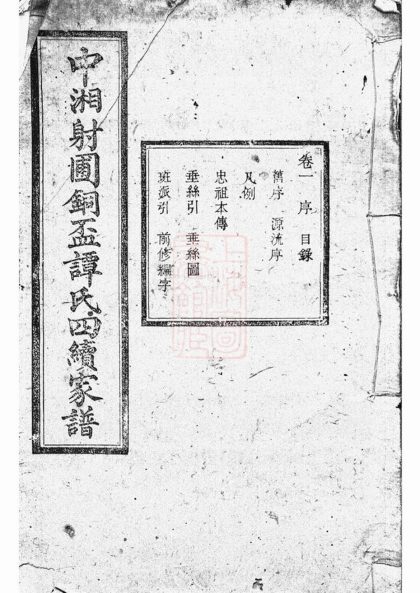 中湘射圃銅盃譚氏四續家譜
卷一 序 目錄
舊序 源流序
凡例
忠祖本傳
垂絲引 垂絲圖
班派引 前修編字